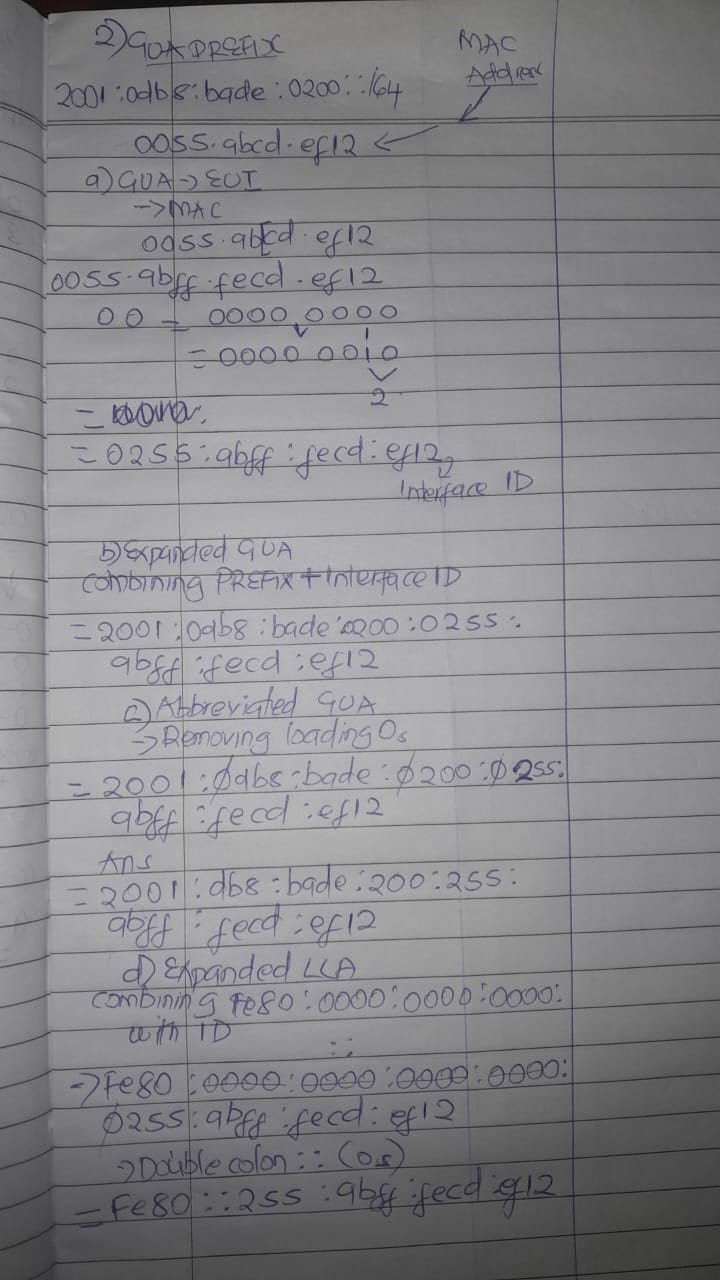 2) GUA PREFIX
MAC
Address
2001:0db8:bade:0200::/64
0055.abcd.ef12
a) GUA → EUI
→ MAC
0055.ab[cd.ef12
0055.abff.fecd.ef12
00 = 0000 0000
1
= 0000 0010
2
=
= 0255:abff:fecd:ef12
Interface ID
b) Expanded GUA
Combining PREFIX + Interface ID
= 2001:0db8:bade:0200:0255:
abff:fecd:ef12
c) Abbreviated GUA
→ Removing loading 0s
= 2001:0db8:bade:0200:0255:
abff:fecd:ef12
Ans
= 2001:db8:bade:200:255:
abff:fecd:ef12
d) Expanded LLA
combining Fe80:0000:0000:0000:
with ID
::
→ Fe80:0000:0000:0000:0000:
0255:abff:fecd:ef12
→ Double colon :: (0s)
= Fe80::255:abff:fecd:ef12